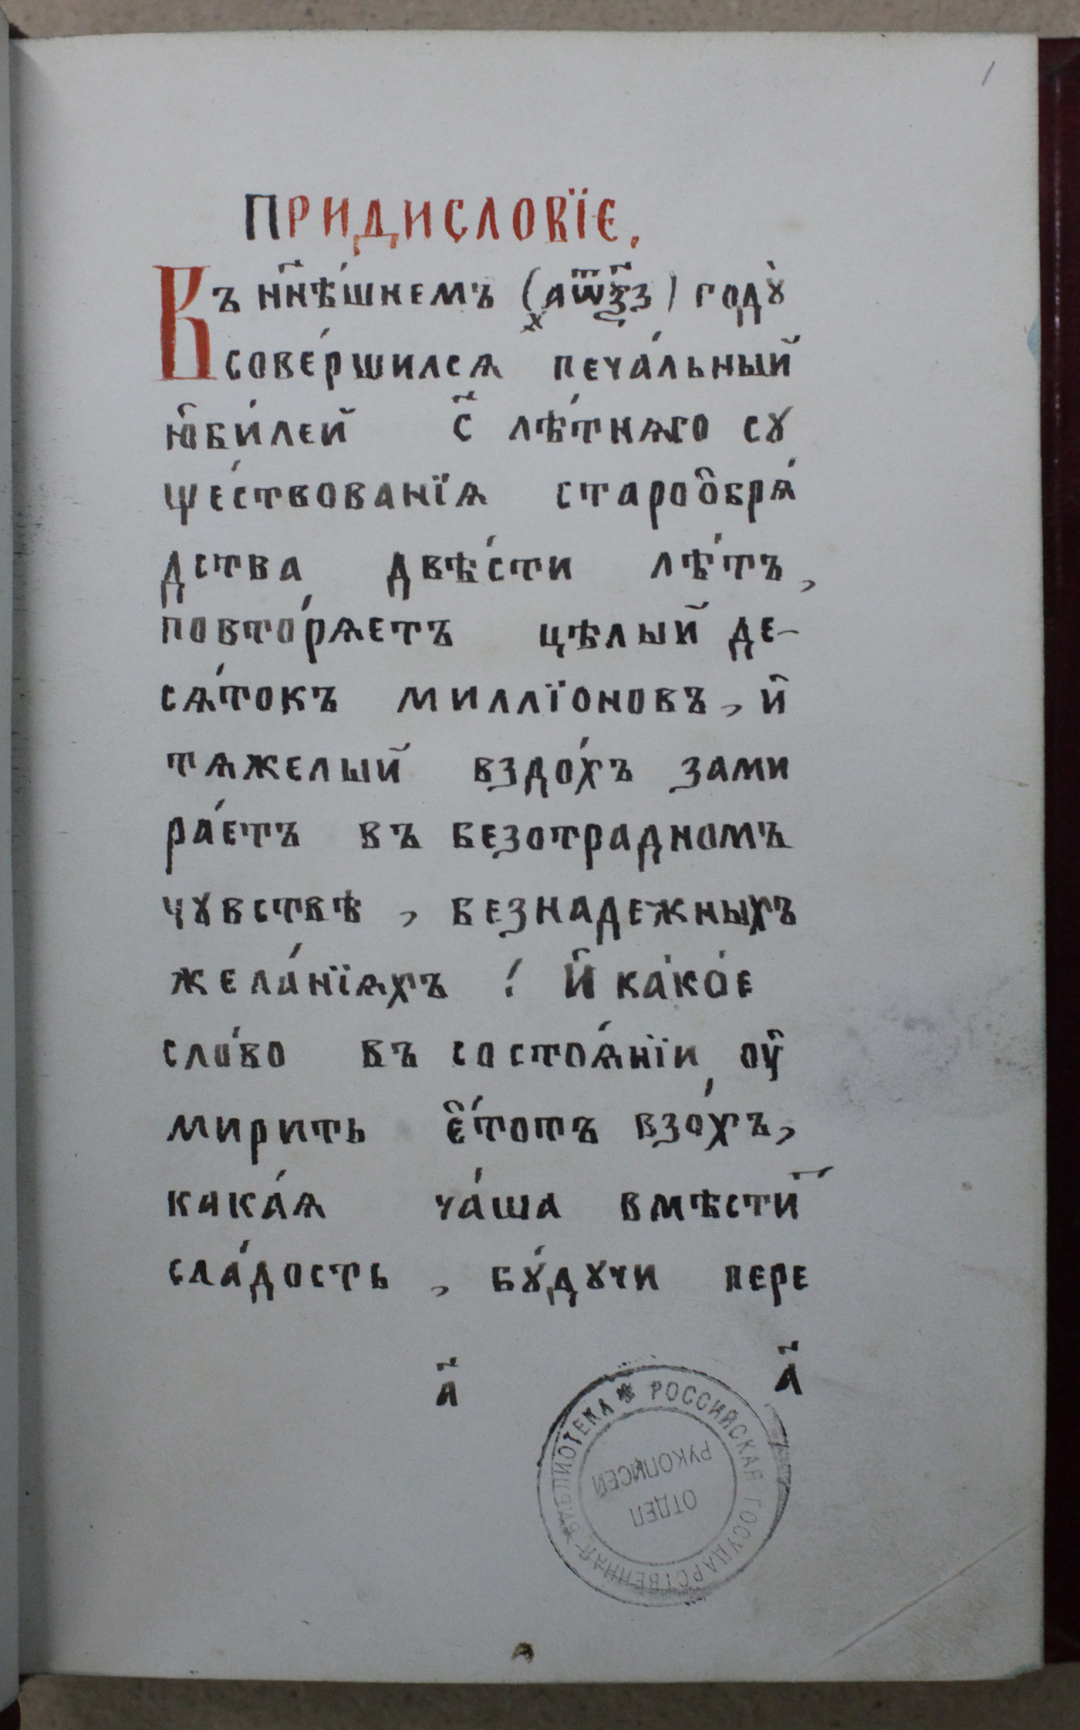 1
ПРИДИСЛОВЇЕ,
Въ нн҃ѣшнемъ (҂аѿѯ҃з) годꙋ̀
соверши́лсѧ печа́льный
ю҆би́лей с҃ лѣ́тнѧго сꙋ
ще́ствованїѧ староо҆брѧ́
дства двѣ́сти лѣ́тъ,
повто́рѧетъ цѣлый де-
сѧ́токъ миллїоновъ, и҆
тѧжелый вздо́хъ зами
ра́етъ въ безотрадномъ
чꙋвствѣ, безнадежныхъ
жела́нїѧхъ! И҆ ка́ко́е
сло́во въ состоѧ́нїи оу҆
мирить е҆́тотъ взо́хъ,
кака́ѧ ча́ша вмѣсти҃
сла́дость, бꙋ́дꙋчи пере
а҃ а҃
РОССИЙСКАЯ ГОСУДАРСТВЕННАЯ БИБЛИОТЕКА *
ОТДЕЛ
РУКОПИСЕЙ